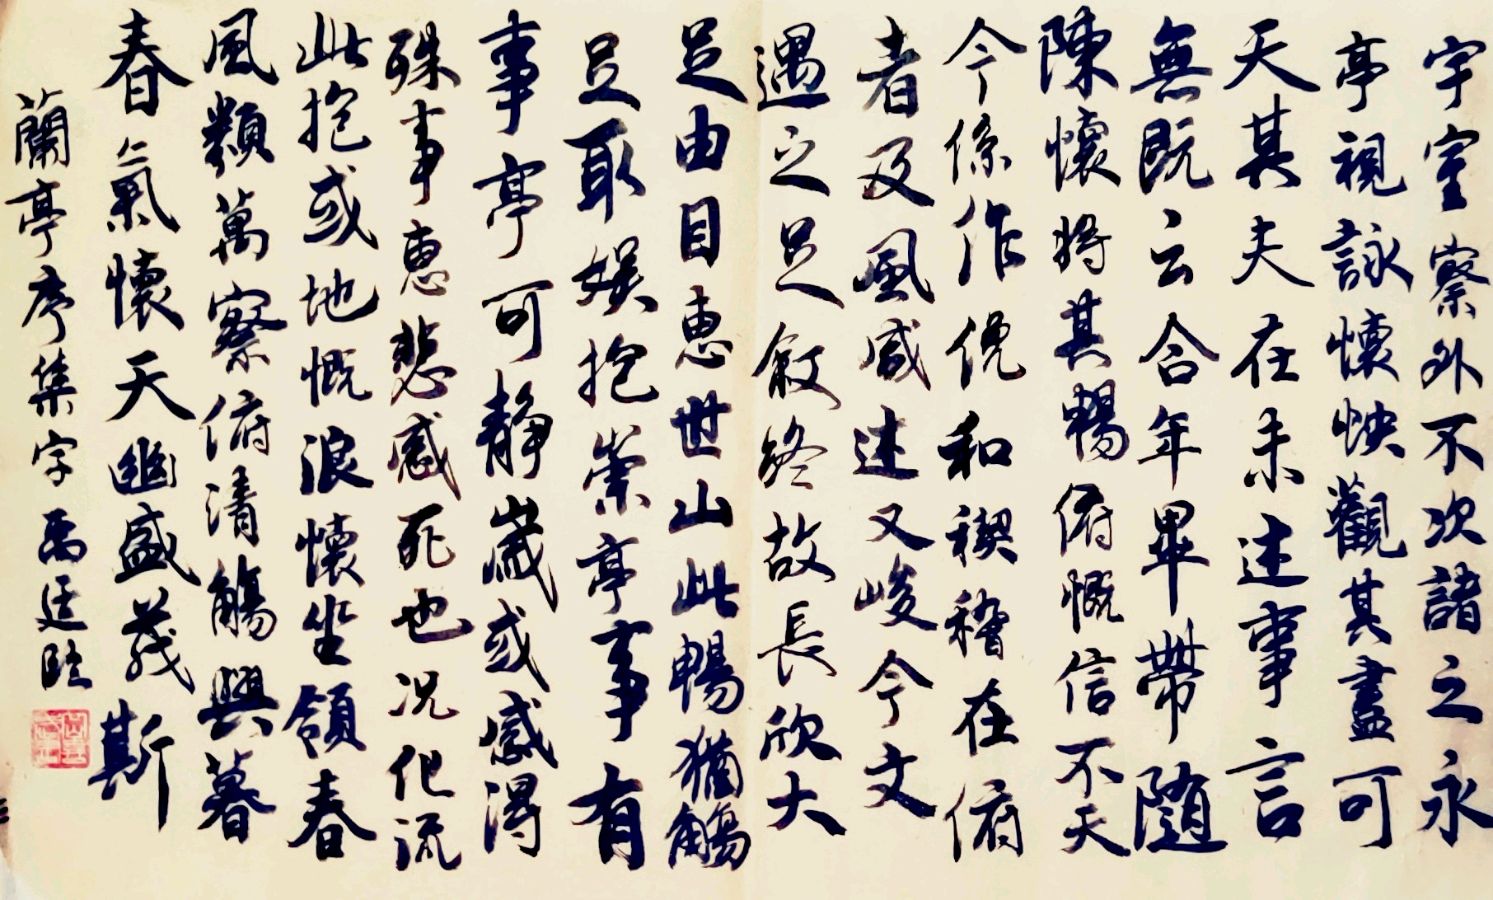 宇室察外不次諸之永
亭視詠懷怏觀其盡可
天其夫在未述事言
無既云合年畢帶随
陳懷將其暢俯慨信不天
今係作俛和稧稽在俯
者及風感述又峻今文
遇之足敘終故長欣大
足由目惠世山此暢猶觴
足取娱抱蘭亭事有
事亭可静歲或感得
殊事惠悲感死也况化流
此抱或地慨浪懷坐領春
風類萬察俯清觴興暮
春氣懷天幽盛茂斯
蘭亭序集字 禹廷臨